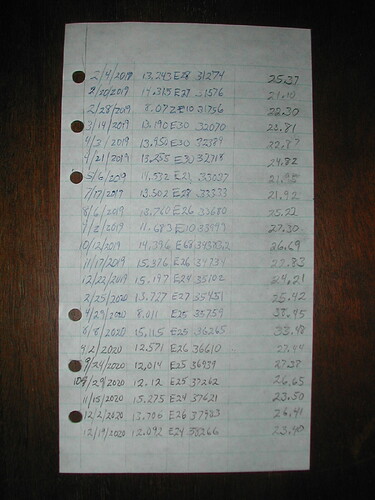 2/4/2019 13,243 E28 31274 25.37
2/20/2019 14.315 E27 31576
2/28/2019 8.072 E10 31756 22.30
3/14/2019 13.190 E30 32070 23.81
4/2/2019 13.950 E30 32389 22.87
4/21/2019 13.255 E30 32718 24.82
5/6/2019 14.532 E21 33037 21.92
7/17/2019 13.502 E28 33333 21.92
8/6/2019 13.760 E26 33680 25.22
9/2/2019 11.683 E10 33999 27.30
10/12/2019 14,396 26.69
11/17/2019 15,376 E26 34734
12/22/2019 15.197 E24 35102 24.21
2/25/2020 13.727 E27 35451 25.42
4/29/2020 8.011 E25 35759 38.45
8/8/2020 15,115 E25 36265 33.48
2020 12.571 E26 36610 27.44
9/24/2020 12,014 E25 36939 27.37
29/2020 12.12 E25 37262 26.65
11/15/2020 15.275 E24 37621 23.50
12/2/2020 13.706 E26 37983 26.41
12/19/2020 12.092 E24 38266 23.40